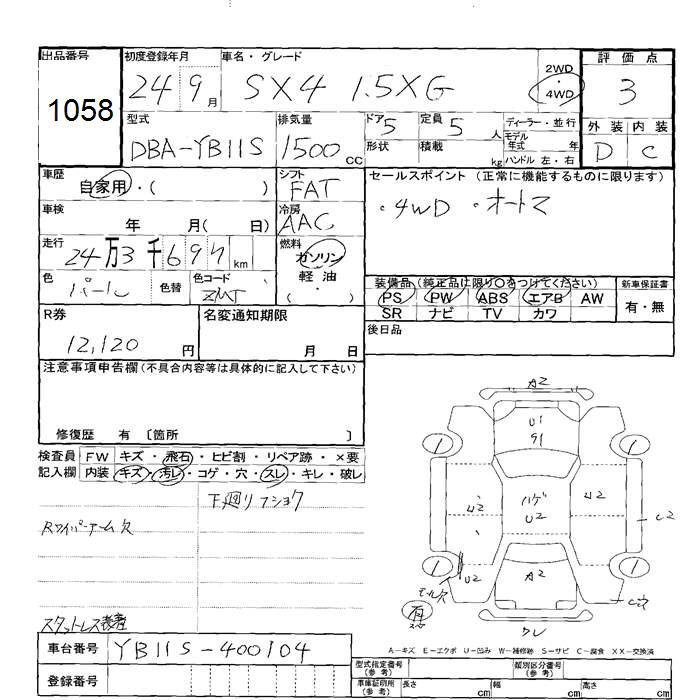 出品番号 初度登録年月 車名・グレード 評価点
1058 24 9月 SX4 1.5XG 2WD・4WD 3
型式 排気量 ドア 5 定員 5人 ディーラー・並行 外装 内装
DBA-YB11S 1500cc 形状 積載 kg モデル年式 年 D C
ハンドル 左・右
車歴 シフト セールスポイント (正常に機能するものに限ります)
自家用・( ) FAT ・4WD ・オートマ
車検 年 月( 日) 冷房 AAC
走行 燃料
24万3千697km ガソリン
色 パール 色替 色コード ZMT 軽油・( 装備品(純正品に限り○をつけてください) 新車保証書
PS PW ABS エアB AW 有・無
R券 名変通知期限 SR ナビ TV カワ
12,120円 月 日 後日品
注意事項申告欄(不具合内容等は具体的に記入して下さい)
修復歴 有 〔箇所 〕
検査員 FW キズ・飛石・ヒビ割・リペア跡・×要
記入欄 内装 キズ・汚レ・コゲ・穴・スレ・キレ・破レ
下廻リフショク
Rワイパーアーム欠
スタットレス装着
A2
U1
91
1 1
U2 ハゲ U2 U2 C2
1 1
U2 A2
モール欠
有
クレ
A-キズ E-エクボ U-凹み W-補修跡 S-サビ C-腐食 XX-交換済
車台番号 YB11S-400104
型式指定番号(参考) 類別区分番号(参考)
登録番号 車庫証明所用(参考) 長さ cm 幅 cm 高さ cm